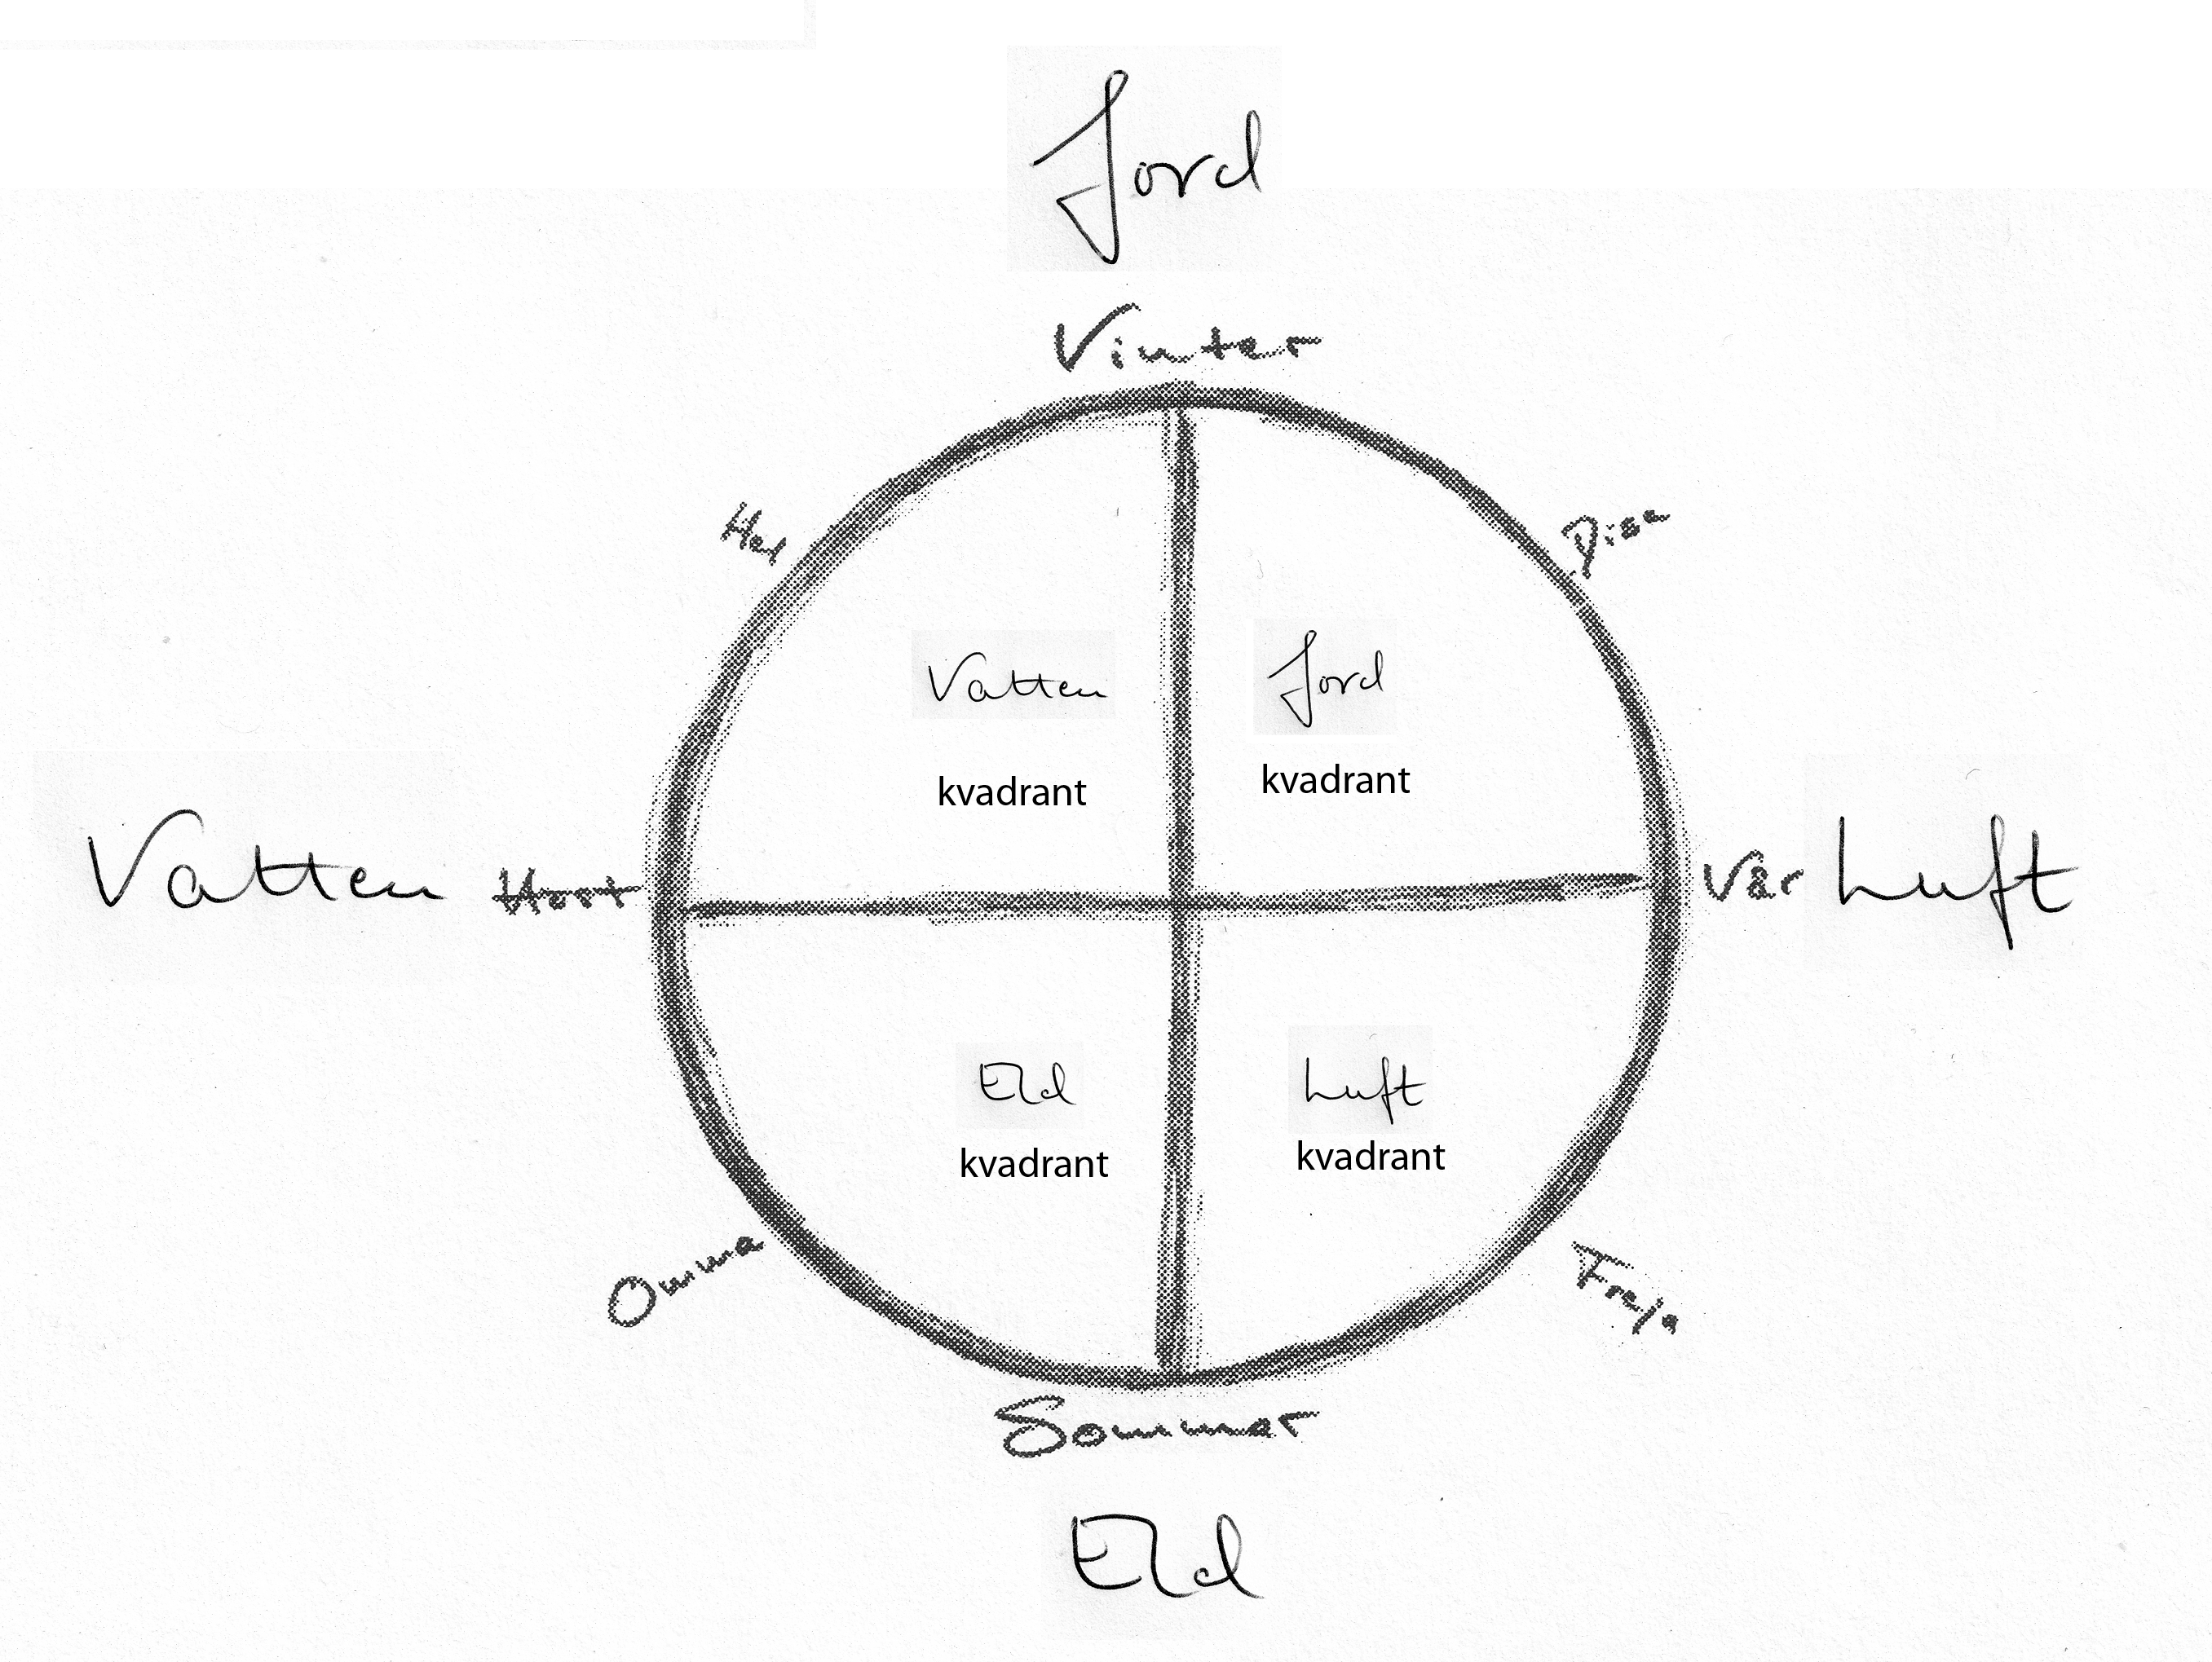 Jord
Vinter
Hel
Disa
Vatten
Jord
kvadrant
kvadrant
Vatten
Höst
Vår
Luft
Eld
Luft
kvadrant
kvadrant
Omma
Freja
Sommar
Eld